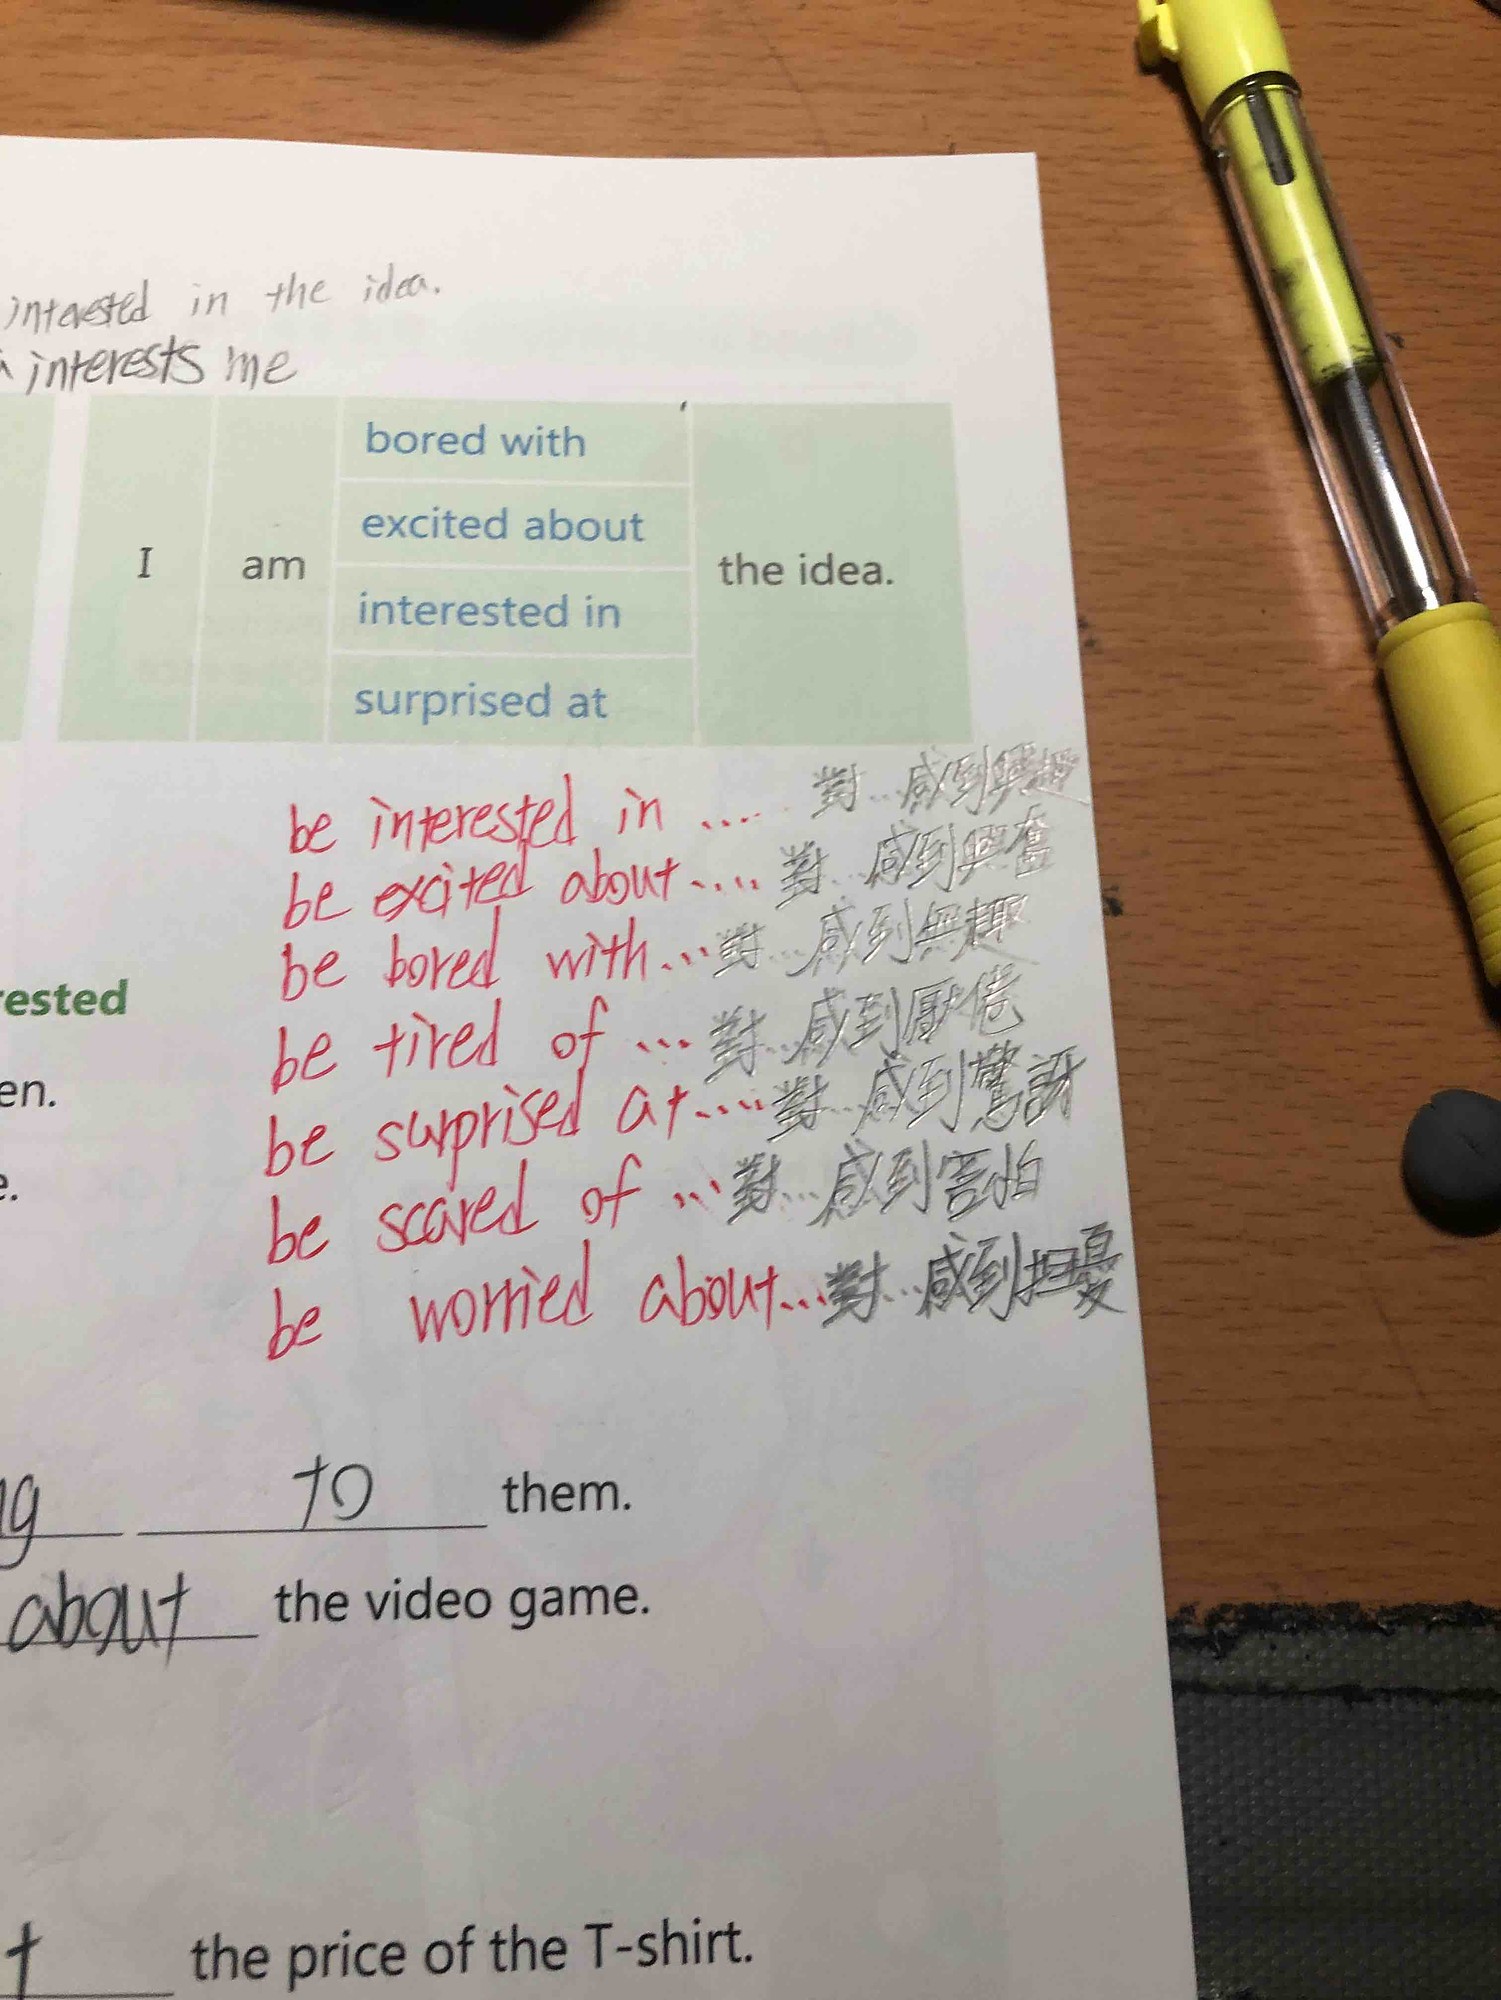 interested in the idea.
interests me
bored with
excited about
I am the idea.
interested in
surprised at
be interested in .... 對...感到興趣
be excited about.... 對...感到興奮
be bored with... 對...感到無趣
rested
be tired of ... 對...感到厭倦
en.
be surprised at.... 對...感到驚訝
e.
be scared of ... 對...感到害怕
be worried about... 對...感到担憂
g to them.
about the video game.
t the price of the T-shirt.